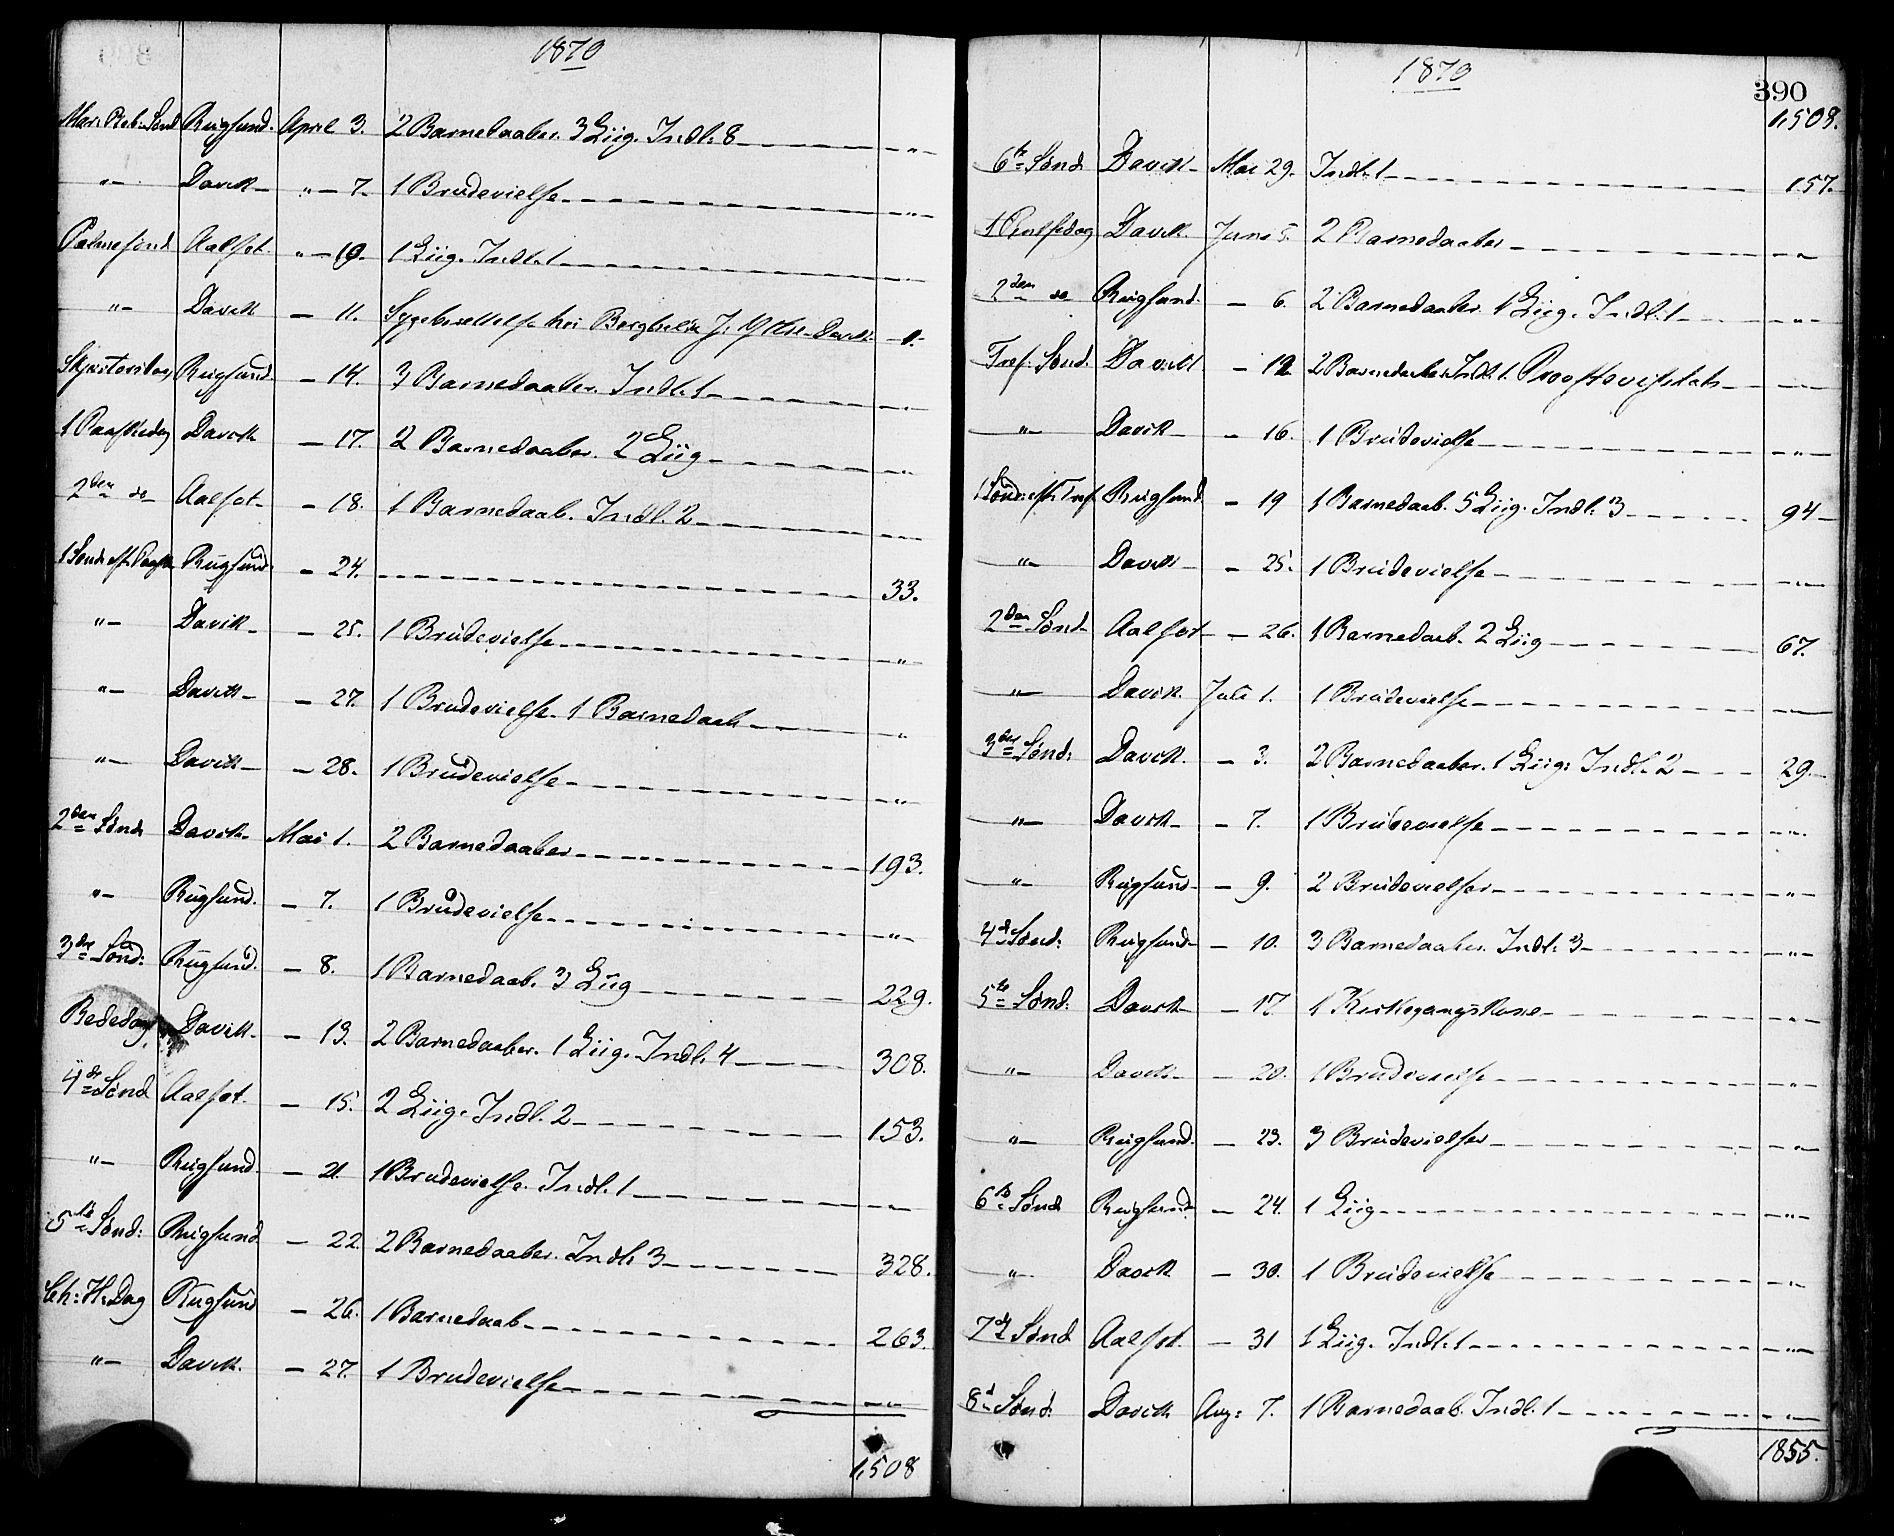 1870
Mar: Beb: Sønd Rugsund. April 3. 2 Barnedaaber. 3 Liig. Indl: 8 — „ —
„ — Davik — „ — 7. 1 Brudevielse — „ —
Palmesønd Aalfot. „ — 10. 1 Liig. Indl. 1 — „ —
„ — Davik — 11. Sygeberettelse hos J. Davik — „ —
Skjærtorsdag Rugsund. — 14. 3 Barnedaaber. Indl. 1 — „ —
1 Paaskedag Davik — 17. 2 Barnedaaber. 2 Liig — „ —
2den do Aalfot — 18. 1 Barnedaab. Indl. 2 — „ —
1 Sønd: eft. Paaske Rugsund. — 24. — 33.
„ — Davik — 25. 1 Brudevielse — „
„ — Davik — 27. 1 Brudevielse. 1 Barnedaab — „
„ — Davik — 28. 1 Brudevielse — „ —
2den Sønd Davik — Mai 1. 2 Barnedaaber — 193.
„ — Rugsund. — 7. 1 Brudevielse — „ —
3die Sønd: Rugsund. — 8. 1 Barnedaab. 3 Liig — 229.
Bededag. Davik — 13. 2 Barnedaaber. 1 Liig. Indl. 4 — 308.
4de Sønd Aalfot. — 15. 2 Liig. Indl. 2 — 153.
„ — Rugsund. — 21. 1 Brudevielse. Indl. 1 — „ —
5te Sønd: Rugsund — 22. 2 Barnedaaber. Indl. 3 — 328.
Ch: H: Dag Rugsund — 26. 1 Barnedaab — 263.
„ — Davik. — 27. 1 Brudevielse — „ —
1,508
1870
390
1,508.
6te Sønd Davik — Mai 29. Indl. 1 — 157.
1 Pintsedag Davik. Juni 5. 2 Barnedaaber — „ —
2den do Rugsund. — 6. 2 Barnedaaber. 1 Liig. Indl. 1 — „ —
Tref. Sønd. Davik — 12 2 Barnedaaber. Indl. 1. Proostevisitats — „ —
„ — Davik — 16. 1 Brudevielse — „ —
1 Sønd: eft. Tref. Rugsund — 19 1 Barnedaab. 5 Liig. Indl: 3 — 94 —
„ — Davik — 25. 1 Brudevielse — „ —
2den Sønd — Aalfot — 26. 1 Barnedaab. 2 Liig — 67.
„ — Davik. Juli 1. 1 Brudevielse — „ —
3die Sønd: Davik. — 3. 2 Barnedaaber. 1 Liig: Indl. 2 — 29. —
„ — Davik — 7. 1 Brudevielse — „ —
„ — Rugsund — 9. 2 Brudevielser — „ —
4de Sønd: Rugsund — 10. 3 Barnedaaber. Indl: 3 — „ —
5te Sønd: Davik — 17. 1 Kirkegangskone — „ —
„ — Davik — 20. 1 Brudevielse — „ —
„ — Rugsund. — 23. 3 Brudevielser — „ —
6te Sønd Rugsund. — 24. 1 Liig — „ —
„ Davik — 30. 1 Brudevielse — „ —
7de Sønd Aalfot. — 31 1 Liig. Indl: 1 — „ —
8d Sønd: Davik Aug: 7. 1 Barnedaab. Indl. 1 — „ —
1855.